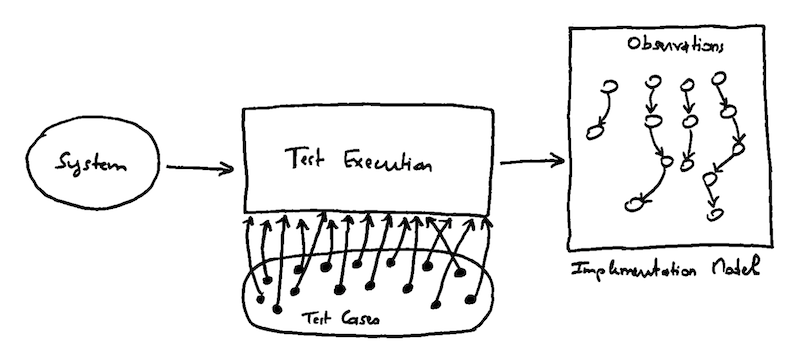 System
Test Execution
Test Cases
Observations
Implementation Model